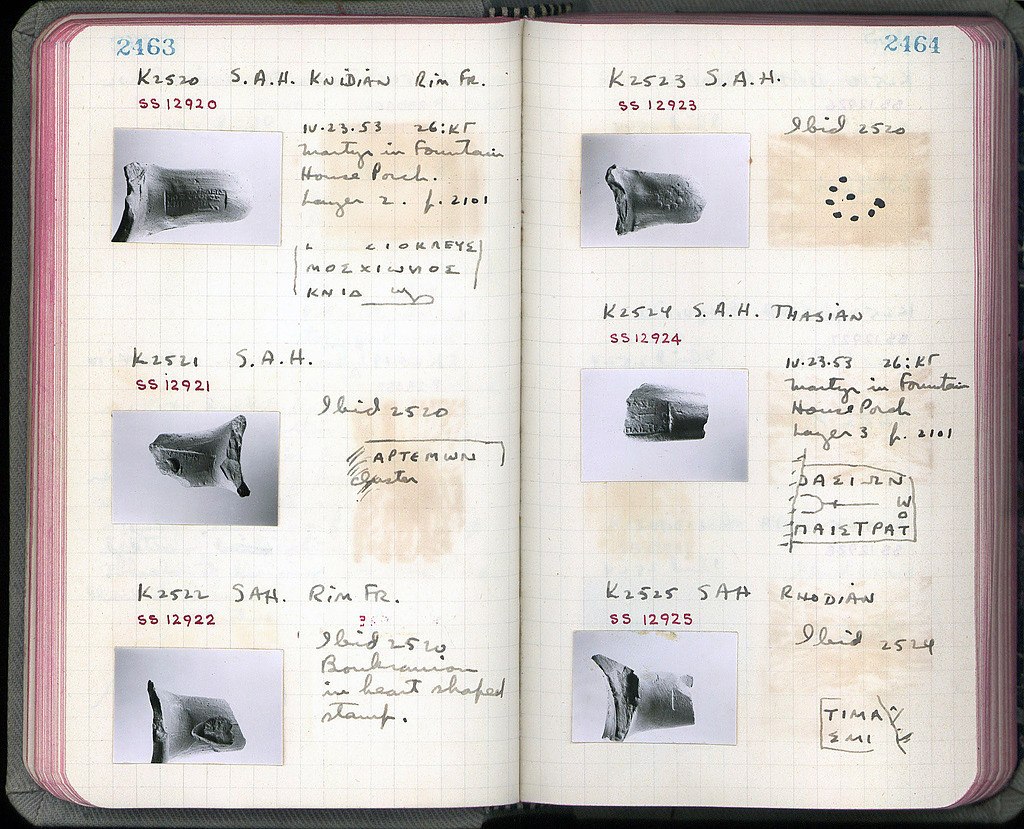 2463
K2520 S.A.H. KNIDIAN RIM FR.
SS 12920
IV.23.53 26:ΚΓ
Martyr in Fountain
House Porch.
Layer 2. p. 2101
ΣΙΟΚΛΕΥΣ
ΜΟΣΧΙΩΝΟΣ
ΚΝΙΔ
K2521 S.A.H.
SS 12921
Ibid 2520
ΑΡΤΕΜΩΝ
cluster
K2522 SAH. RIM FR.
SS 12922
Ibid 2520
Boukranion
in heart shaped
stamp.
2464
K2523 S.A.H.
SS 12923
Ibid 2520
K2524 S.A.H. THASIAN
SS 12924
IV.23.53 26:ΚΓ
Martyr in Fountain
House Porch
Layer 3 p. 2101
ΘΑΣΙΩΝ
Ω
Ο
ΠΑΙΣΤΡΑΤ
K2525 SAH RHODIAN
SS 12925
Ibid 2524
ΤΙΜΑ
ΣΜΙ